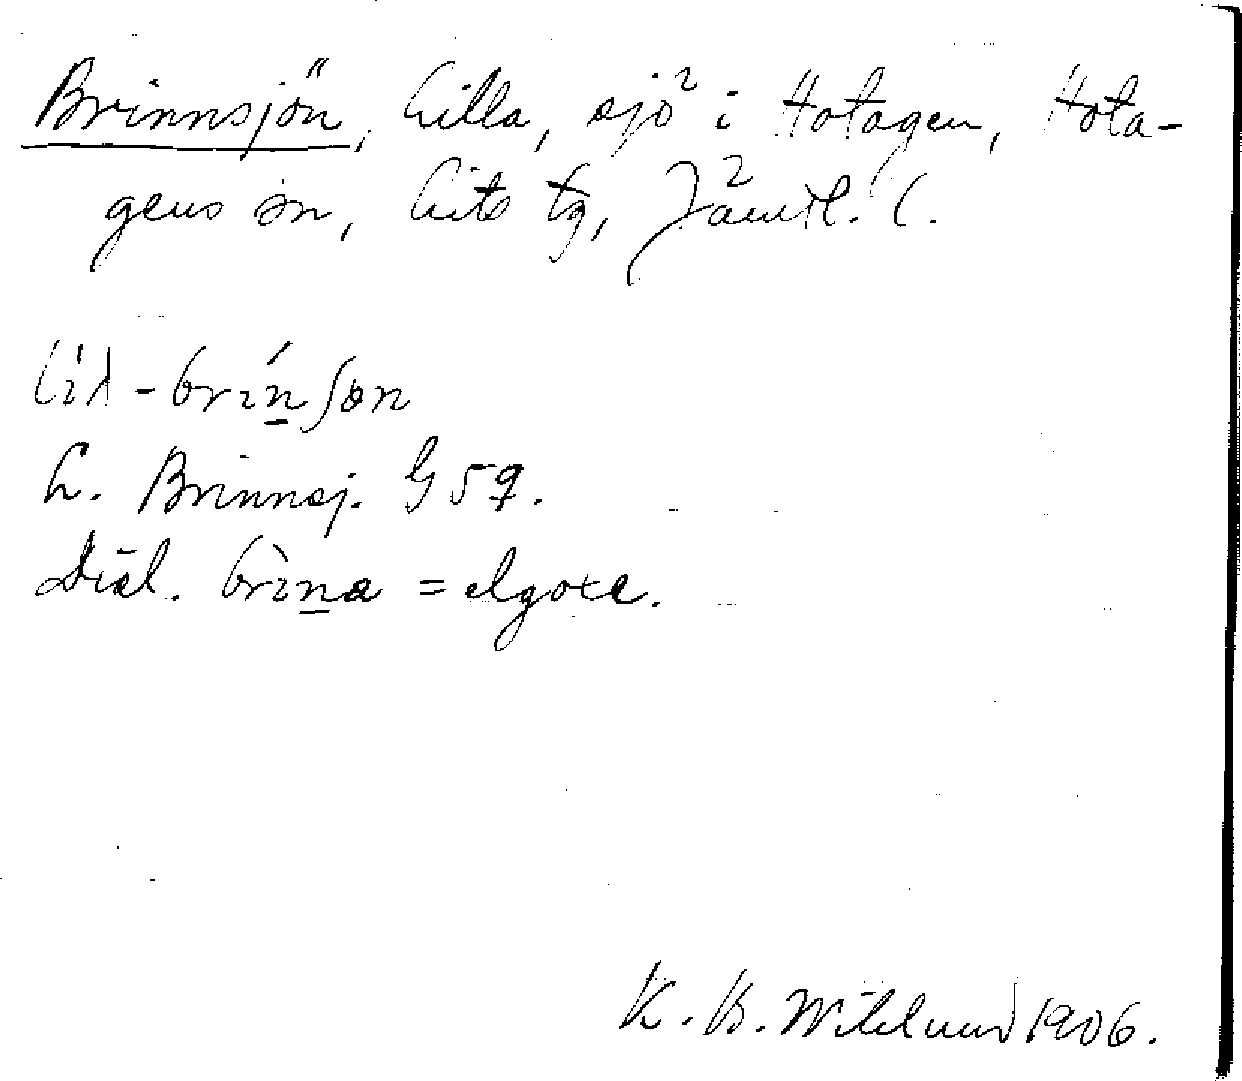 Brinnsjön, Lilla, sjö i Hotagen, Hota-
gens sn, Lits tg, Jämtl. l.
lìλ-brínʃɵn
L. Brinnsj. G 59.
Dial. brìna = elgoxe.
K. B. Wiklund 1906.